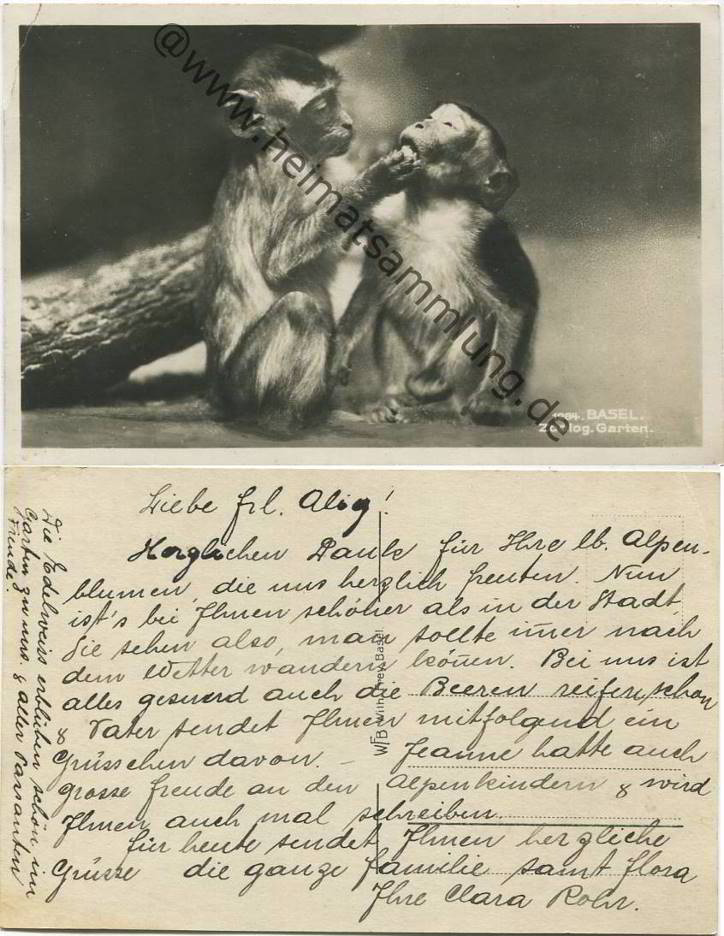 @www.heimatsammlung.de
1064. BASEL.
Zoolog. Garten.
Liebe Frl. Alig!
Herzlichen Dank für Ihre lb. Alpen-
blumen, die uns herzlich freuten. Nun
ist's bei Ihnen schöner als in der Stadt.
Sie sehen also, man sollte im̅er nach
dem Wetter wandern kön̅en. Bei uns ist
alles gesund auch die Beeren reifen, schon
& Vater sendet Ihnen mitfolgend ein
Grüsschen davon. – Jeanne hatte auch
grosse Freude an den Alpenkindern & wird
Ihnen auch mal schreiben.
Für heute sendet Ihnen herzliche
Grüsse die ganze Familie samt Flora
Ihre Clara Rohr.
Die Edelweiss erblühen schön im
Garten zu uns. & aller Passanten
Freude.
WFB Basel